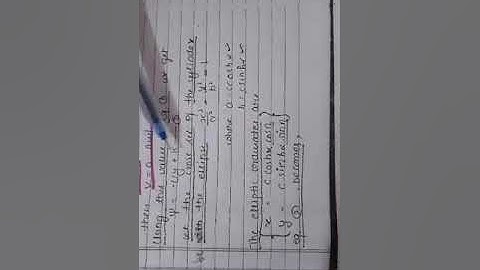 then v = 0 and
Using this value eq ① we get
ψ = -Uy + k
Let the cross sec of the cylinder
be with the ellipse x²/a² + y²/b² = 1
where a = c cosh α
b = c sinh α
The elliptic coordinates are
x = c cosh ξ cos η
y = c sinh ξ sin η
eq ② becomes,